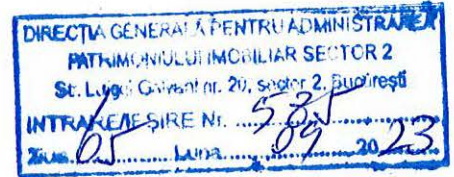 DIRECȚIA GENERALĂ PENTRU ADMINISTRAREA
PATRIMONIULUI IMOBILIAR SECTOR 2
St. nr. 20, sector 2, București
INTRARE/IEȘIRE Nr. 535
Ziua 05 Luna 09 2023